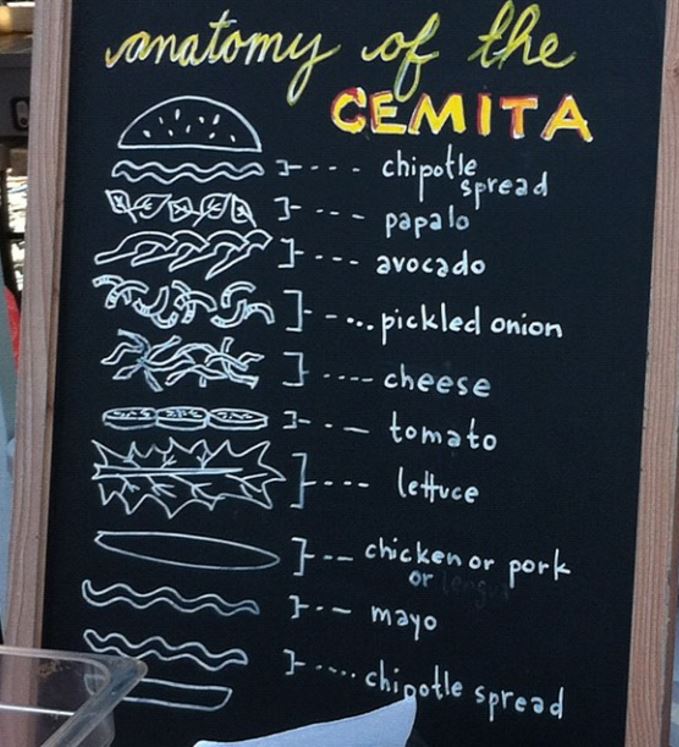 anatomy of the
CEMITA
chipotle
spread
papalo
avocado
pickled onion
cheese
tomato
lettuce
chicken or pork
or lengua
mayo
chipotle spread